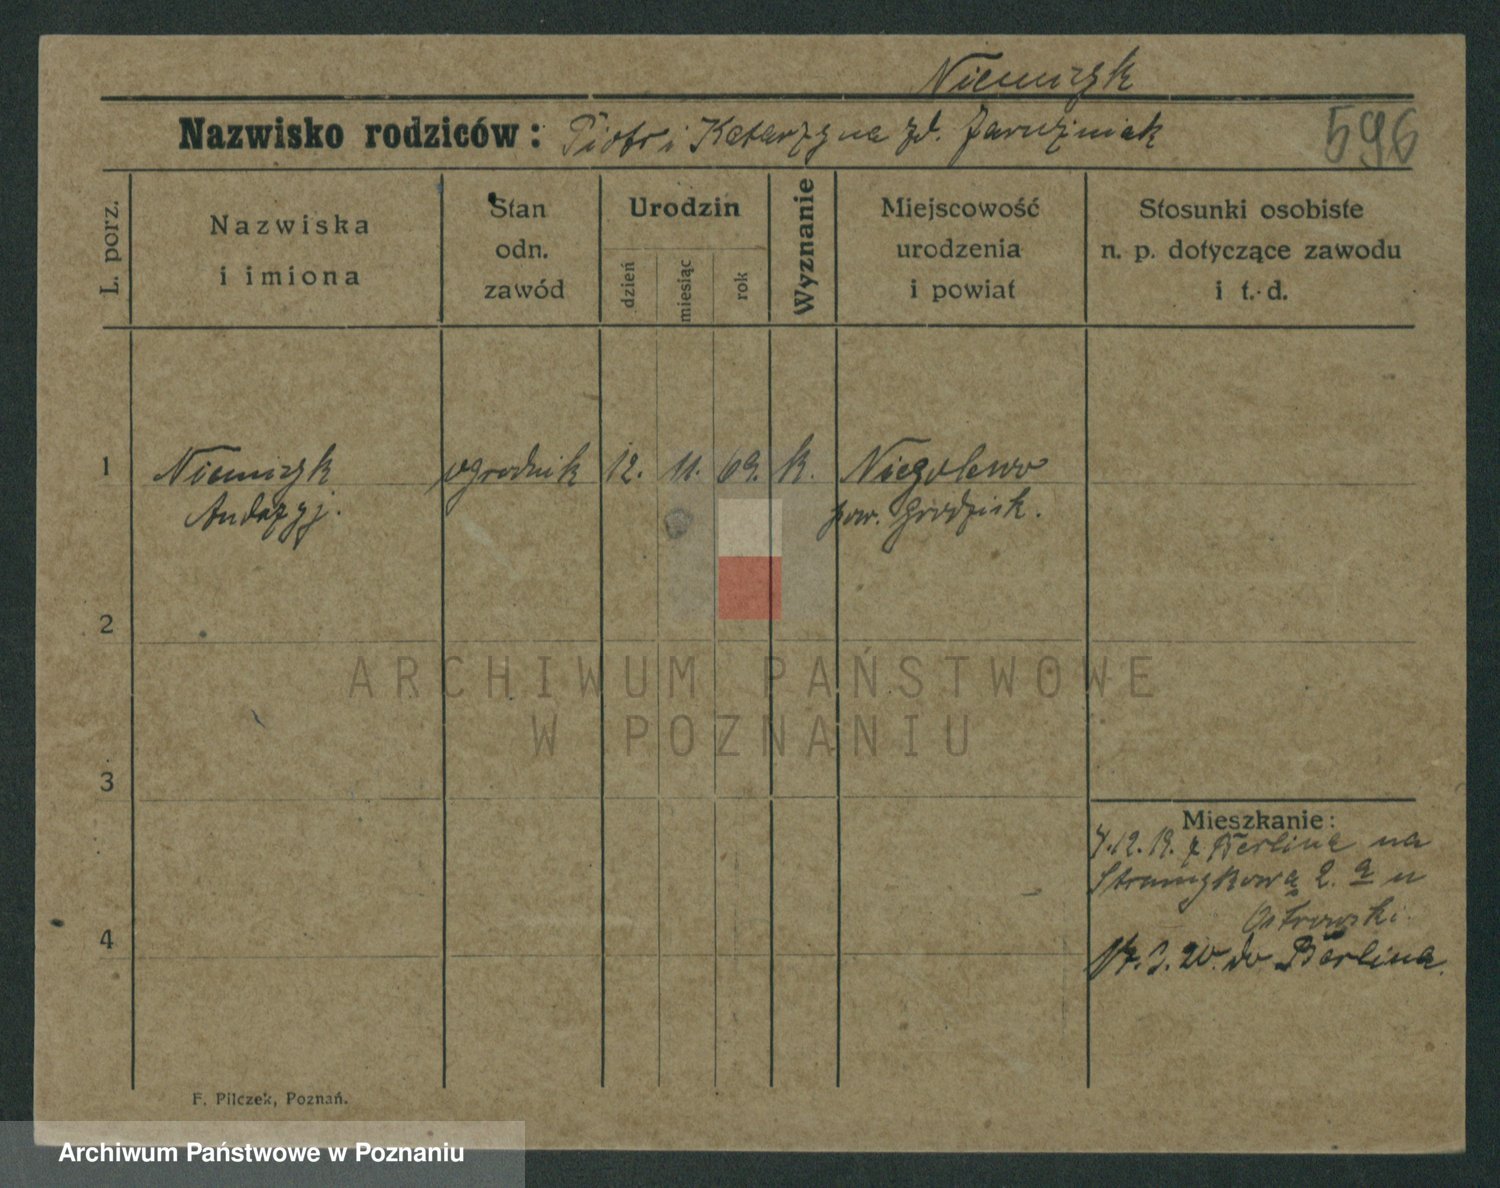 Niemczyk
Nazwisko rodziców: Piotr i Katarzyna zd. Jaruzniak
596
L. porz.
Nazwiska
i imiona
Stan
odn.
zawód
Urodzin
dzień
miesiąc
rok
Wyznanie
Miejscowość
urodzenia
i powiat
Stosunki osobiste
n. p. dotyczące zawodu
i t. d.
1 Niemczyk ogrodnik 12. 11. 69. k. Niegolewo
Andrzyj. pow. Grodzisk.
2
ARCHIWUM PAŃSTWOWE
W POZNANIU
3
Mieszkanie:
12. 19. z Berlina na
2. u
Ostrowski.
4
20. do Berlina.
F. Pilczek, Poznań.
Archiwum Państwowe w Poznaniu